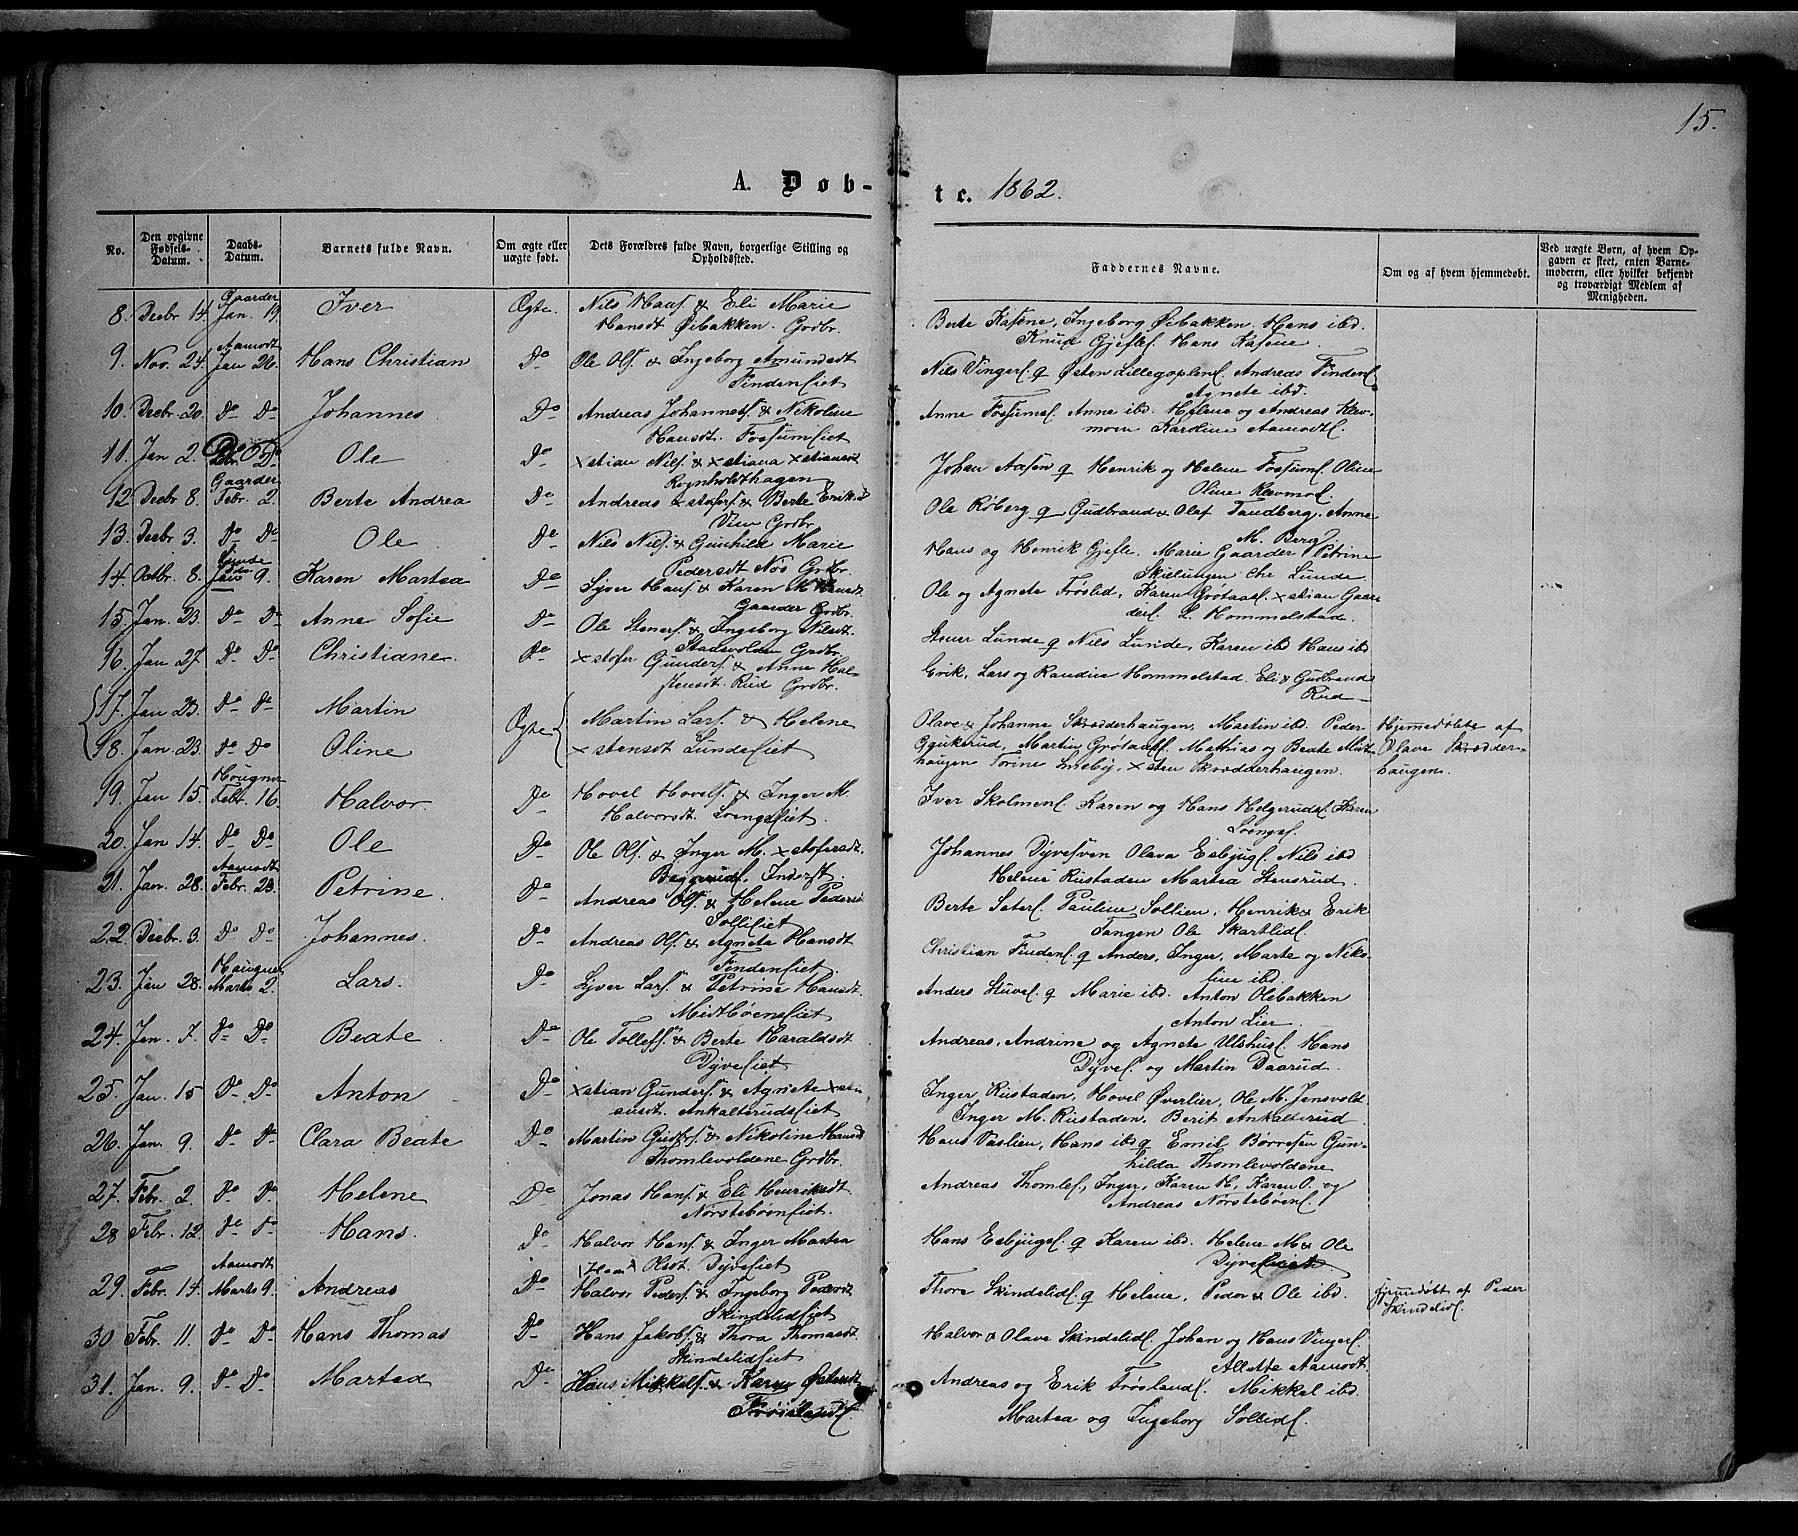 15.
A. Døb-
te. 1862.
No.
Den opgivne Fødsels-Datum.
Daabs-Datum.
Barnets fulde Navn.
Om ægte eller uægte født.
Dets Forældres fulde Navn, borgerlige Stilling og Opholdssted.
Faddernes Navne.
Om og af hvem hjemmedøbt.
Ved uægte Børn, af hvem Opgaven er skeet, enten Barnemoderen, eller hvilket bekjendt og troværdigt Medlem af Menigheden.
8. Decbr 14. Gaarder Jan. 19. Iver Ægte. Nils Hans. & Eli Marie
Hansdt Øibakken. Grdbr.
Berte Kasene, Ingeborg Øibakken. Hans ibd.
Knud Gjefles. Hans Kasene.
9. Nov. 24. Aamodt Jan 26. Hans Christian Do Ole Ols. & Ingeborg Amundsdt
Findenseiet
Nils Vingers. q Østen Lillegoplens. Andreas Findens
Agnete ibd.
10. Decbr 20. Do Do Johannes Do Andreas Johannes. & Nikoline
Hansdt. Fossumseiet
Anne Fossums. Anne ibd. Helene og Andreas Klev-
moen Karoline Aamodts.
11. Jan 2. Do Do Ole Do Xstian Nils. & Xstiana Xstiansdt
Rognholdthagen
Johan Aasen q Henrik og Helene Fossums. Oline
Oline Klevmos.
12 Decbr 8. Gaarder Febr. 2. Berte Andrea Do Andreas Xstofers. & Berte Eriksdt
Viem Grdbr.
Ole Roberg q Gudbrand & Olaf Tandberg. Anne
M. Berg
13. Decbr 3. Do Do Ole Do Nils Nils. & Gunhild Marie
Pedersdt Nøs Grdbr.
Hans og Henrik Gjefle. Marie Gaarder Petrine
Skjelungen Chr Lunde
14. Octbr. 8. Lunde Jan 9. Karen Martea Do Syver Hans. & Karen M. Hansdt
Gaarder Grdbr.
Ole og Agnete Frøslid, Karen Grøtaas. Xstian Gaar-
ders. L. Hommelstad.
15. Jan. 23. Do Do Anne Sofie Do Ole Steners. & Ingeborg Nilsdt.
Stadsvolden Grdbr.
Stener Lunde q Nils Lunde, Karen ibd Hans ibd
16. Jan 27. Do Do Christiane. Do Xstofer Gunders. & Anne Hal-
stensdt. Rud Grdbr.
Erik, Lars og Randine Hommelstad. Eli & Gudbrand
Rud
17. Jan 23. Do Do Martin Ægte Martin Lars. & Helene
Xstensdt Lundeseiet
18. Jan. 23. Do Do Oline
Olave & Johanne Skrædderhaugen, Martin ibd. Peder
Ggukerud, Martin Grøtaas. Mathias og Beate Midt-
haugen Torine Linneby, Xsten Skrædderhaugen.
Hjemmedøbte af
Olave Skrædder-
haugen.
19. Jan 15. Haugner Febr. 16. Halvor. Do Hovel Hovels. & Inger M.
Halvorsdt. Løengseiet.
Iver Skolmens. Karen og Hans Helgeruds. Karen
Loengs.
20. Jan 14. Do Do Ole Do Ole Ols. & Inger M. Xstofersdt.
Bøggeruds. Inderst.
Johannes Dyvesven Olava Esbjugs. Nils ibd
Helene Rustaden Martea Stensrud.
21. Jan. 28. Aamodt Febr. 23. Petrine. Do Andreas Ols. & Helene Pedersdt
Solliseiet
Berte Seters. Pauline Sollien. Henrik & Erik
Tangen Ole Skartlids.
22. Decbr. 3. Do Do Johannes. Do Andreas Ols. & Agnete Hansdt
Findenseiet
Christian Findens. q Anders, Inger, Marte og Niko-
line ibd.
23. Jan 28. Haugner Marts 2. Lars. Do Syver Lars. & Petrine Hansdt.
Midtbøenseiet
Anders Stuves. q Marie ibd. Anton Olebakken
Anton Lier.
24. Jan. 7. Do Do Beate Do Ole Tollefs. & Berte Haraldsdt
Dyveseiet
Andreas, Andrine og Agnete Ulshus. Hans
Dyves. og Martin Daarud.
25. Jan. 15 Do Do Anton Do Xstian Gunders. & Agnete Xsti-
ansdt. Ankalterudseiet
Inger, Rustaden, Hovel Øverlier, Ole M. Jensvold
Inger M. Rustaden, Berit Ankalterud
26. Jan. 9. Do Do Clara Beate Do Martin Gudbrs. & Nikoline Hansdt
Thomlevoldene Grdbr.
Hans Vaslien, Hans ibd q Emil Børresen Gun-
hilda Thomlevoldene
27. Febr. 2 Do Do Helene Do Jonas Hans. & Eli Henriksdt
Nørstebøenseiet.
Andreas Thomles. Inger, Karen H, Karen O. og
Andreas Nørstebøens.
28 Febr. 12. Do Do Hans. Do Halvor Hans. & Inger Martea
Olsdt. Dyveseiet
Hans Esbjugs. q Karen ibd. Helene M & Ole
Dyveseiet
29. Febr. 14. Aamodt Marts 9. Andreas Do Halvor Peders. & Ingeborg Pedersdt
Skindelidseiet
Thora Skindelids. q Helene, Peder & Ole ibd.
Hjemmedøbt af Peder
Skindelids.
30. Febr. 11. Do Do Hans Thomas Do Hans Jakobs. & Thora Thomasdt
Skindelidseiet
Halvor & Olava Skindelids. Johan og Hans Vingers.
Allette Aamodt.
31. Jan. 9. Do Do Martea Do Hans Mikkels. & Karen Østensdt
Frøislands.
Andreas og Erik Frøslands. Mikkel ibd.
Martea og Ingeborg Sollids.